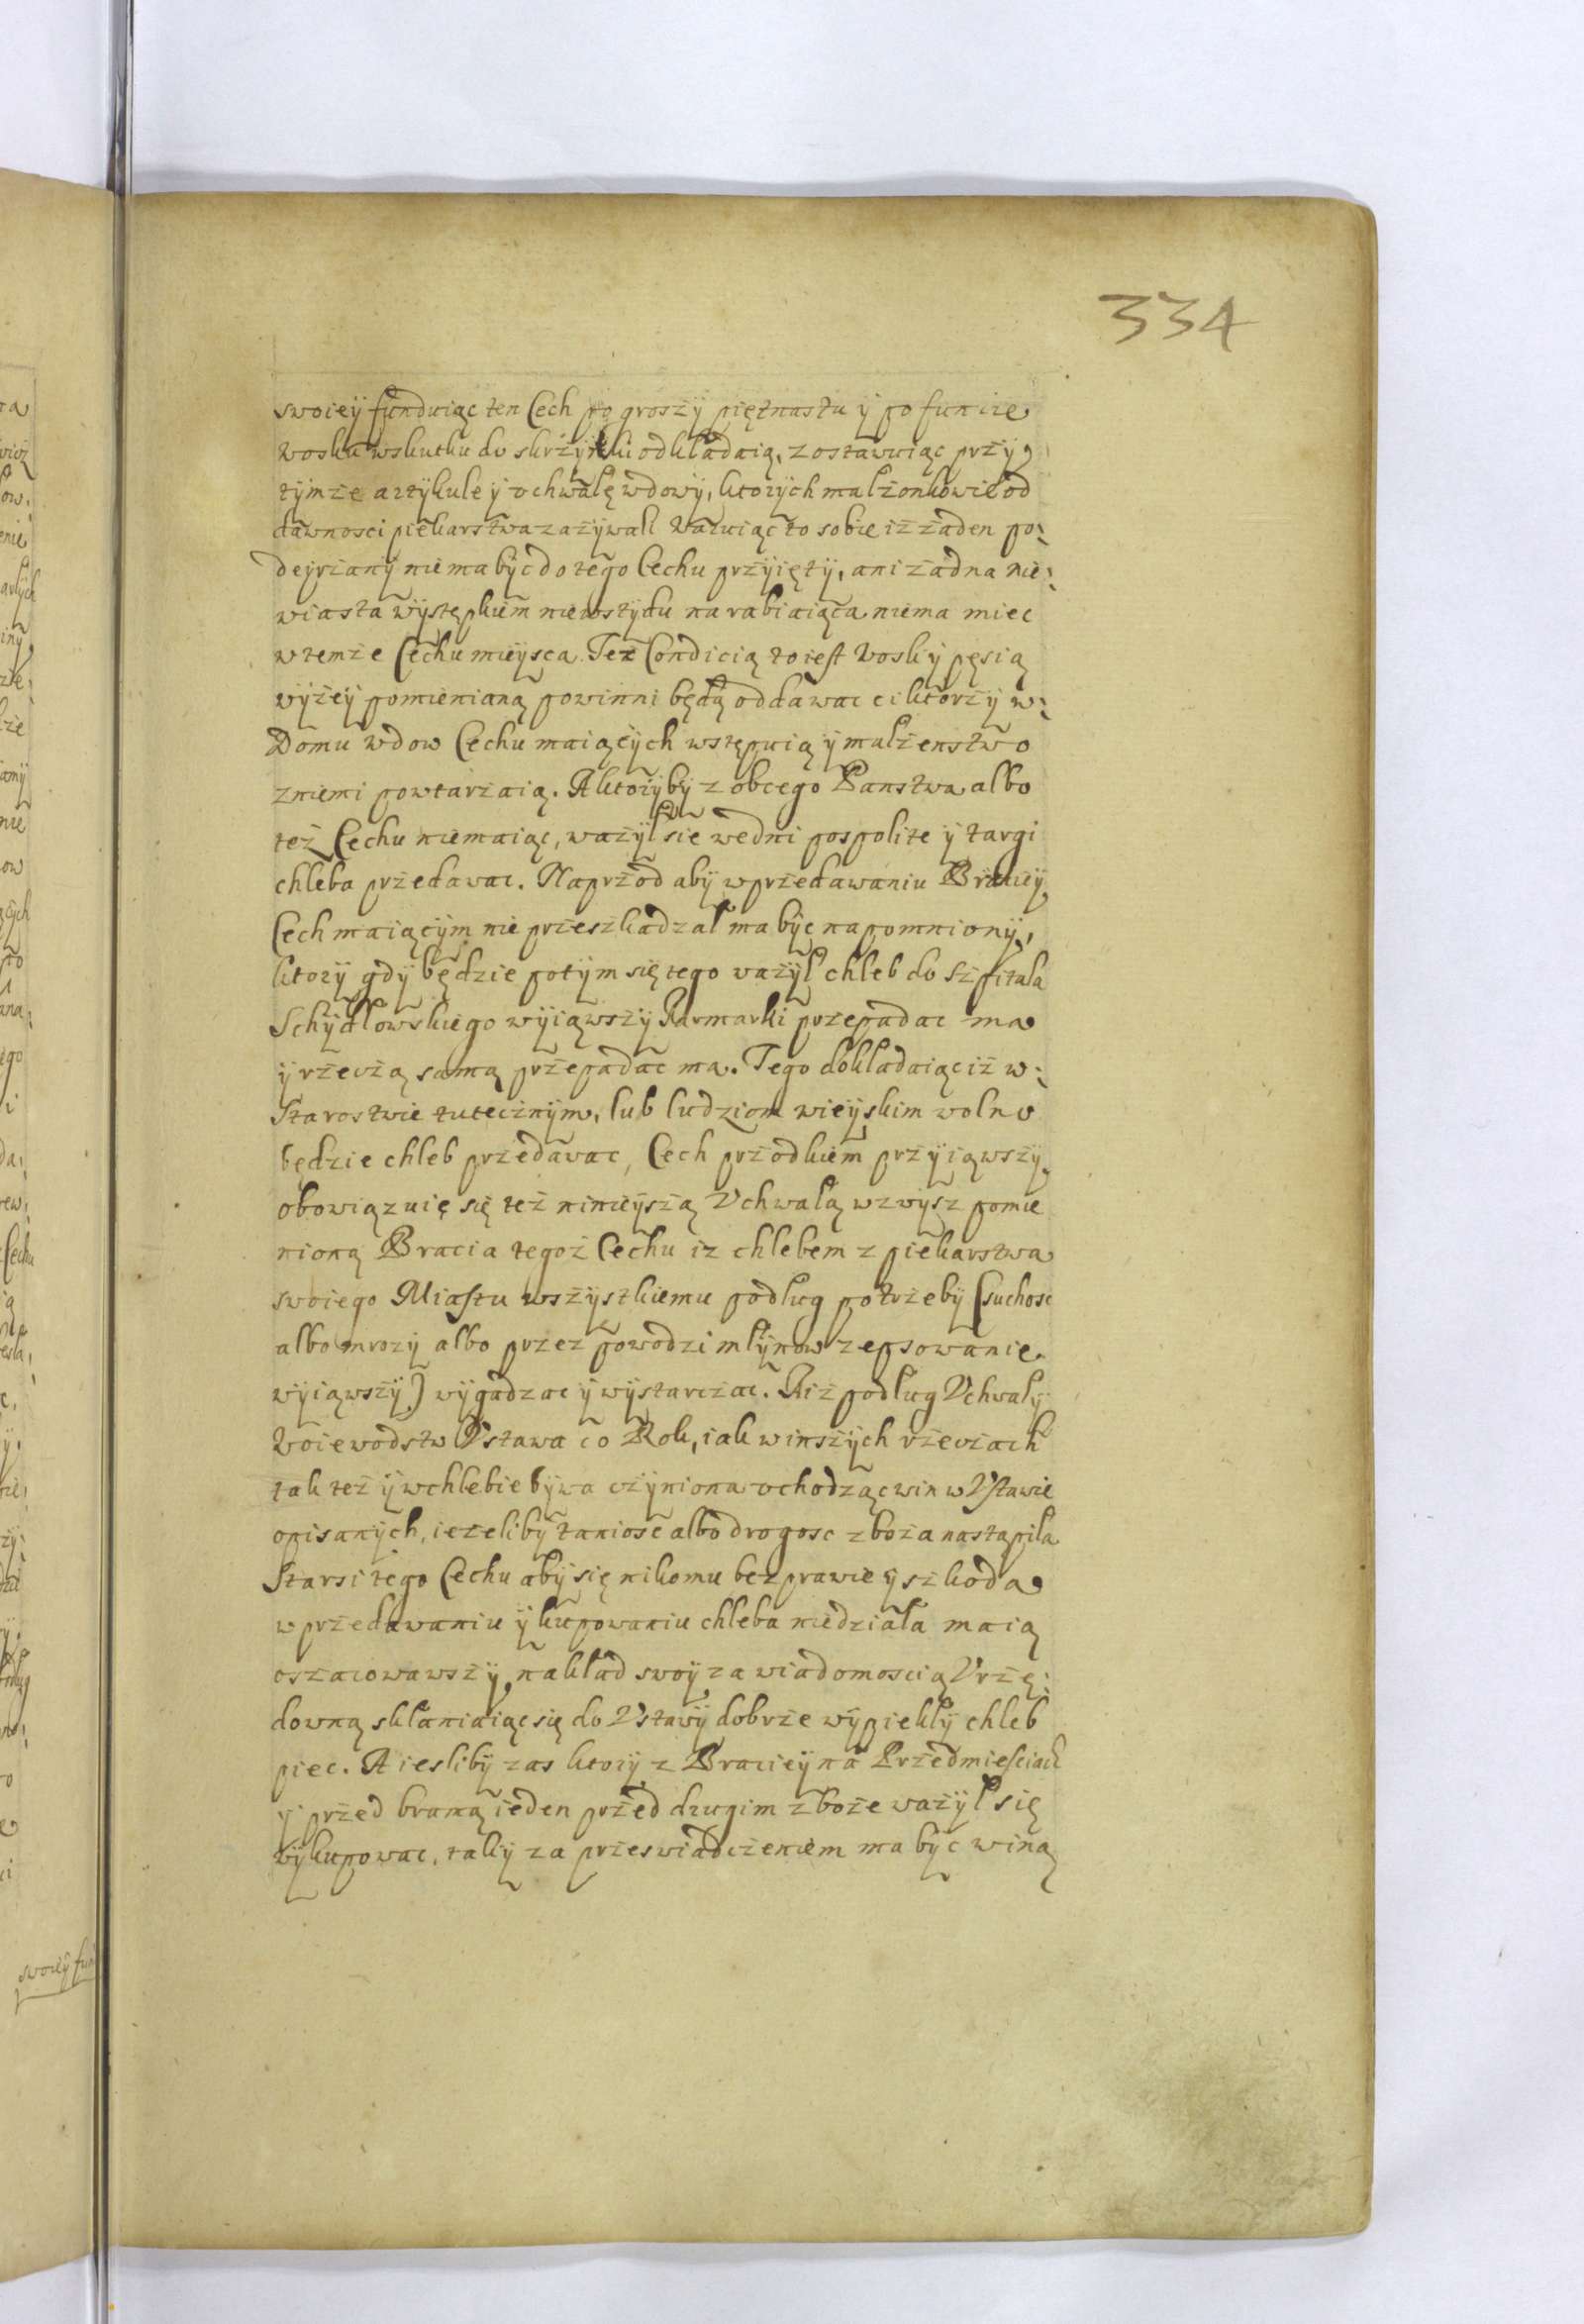 334
swoieÿ funduiąc ten Cech po groszÿ piętnastu ÿ po funcie
wosku wskutku do skrzÿnki odkładaią, zostawuiąc przÿ
tÿmże artÿkule ÿ vchwalę wdowÿ, ktorÿch małżonkowie od
dawnosci piekarstwa zażÿwali waruiąc to sobie iż żaden po:
deÿrżanÿ niema bÿc do tego Cechu przÿiętÿ, ani żadna nie:
wiasta wÿstępkiem niewstÿdu narabiaiąca niema miec
wtemże Cechu mieÿsca. Też Condicią to iest wosk ÿ pęsią
wÿżeÿ pomienianą powinni będą oddawac ci ktorzÿ w:
Domu wdow Cechu maiącÿch wstępuią ÿ małżenstwo
zniemi powtarżaią. A ktorÿbÿ z obcego Panstwa albo
też Cechu niemaiąc, ważÿł się wedni pospolite ÿ targi
chleba przedawac. Naprzod abÿ wprzedawaniu Bracieÿ
Cech maiącÿm nie przeszkadzał ma bÿc napomnionÿ,
ktorÿ gdÿ będzie potÿm się tego ważÿł chleb do Szpitala
Schÿdłowskiego wÿiąwszÿ Jarmarki przepadac ma
ÿ rzeczą samą przepadac ma. Tego dokładaiąc iż w:
Starostwie tutecznÿm, lub ludziom wieÿskim wolno
będzie chleb przedawac, Cech przodkiem przÿiąwszÿ
obowiązuię się też ninieÿszą Vchwałą wzwÿsz pomie
nioną Bracia tegoż Cechu iz chlebem z piekarstwa
swoiego Miastu wszÿstkiemu podług potrzebÿ (suchosc
albo mrozÿ albo przez powodzi młÿnow zepsowanie
wÿiąwszÿ) wÿgadzac ÿ wÿstarczac. A iż podług Vchwałÿ
Woiewodstw Vstawa co Rok, iak winszÿch rzeczach
tak też ÿ wchlebie bÿwa czÿniona vchodząc win w Vstawie
opisanÿch, ieżelibÿ taniosc albo drogosc zboża nastąpiła
Starsi tego Cechu abÿ się nikomu bezprawie ÿ szkoda
w przedawaniu ÿ kupowaniu chleba niedziała maią
oszacowawszÿ nakład swoÿ za wiadomoscią Vrzę:
downą skłaniaiąc się do Vstawÿ dobrze wÿpiekłÿ chleb
piec. A ieslibÿ zas ktorÿ z Bracieÿ na Przedmiesciach
ÿ przed bramą ieden przed drugim zboże ważÿł się
wÿkupowac, takÿ za przeswiadczeniem ma bÿc winą